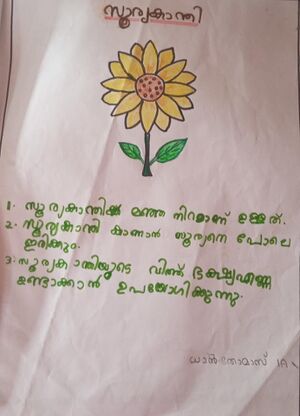 സൂര്യകാന്തി
1. സൂര്യകാന്തിക്ക് മഞ്ഞ നിറമാണ് ഉള്ളത്.
2. സൂര്യകാന്തി കാണാൻ സൂര്യനെ പോലെ
ഇരിക്കും.
3. സൂര്യകാന്തിയുടെ വിത്ത് ഭക്ഷ്യഎണ്ണ
ഉണ്ടാക്കാൻ ഉപയോഗിക്കുന്നു.
തോമാസ് 1A